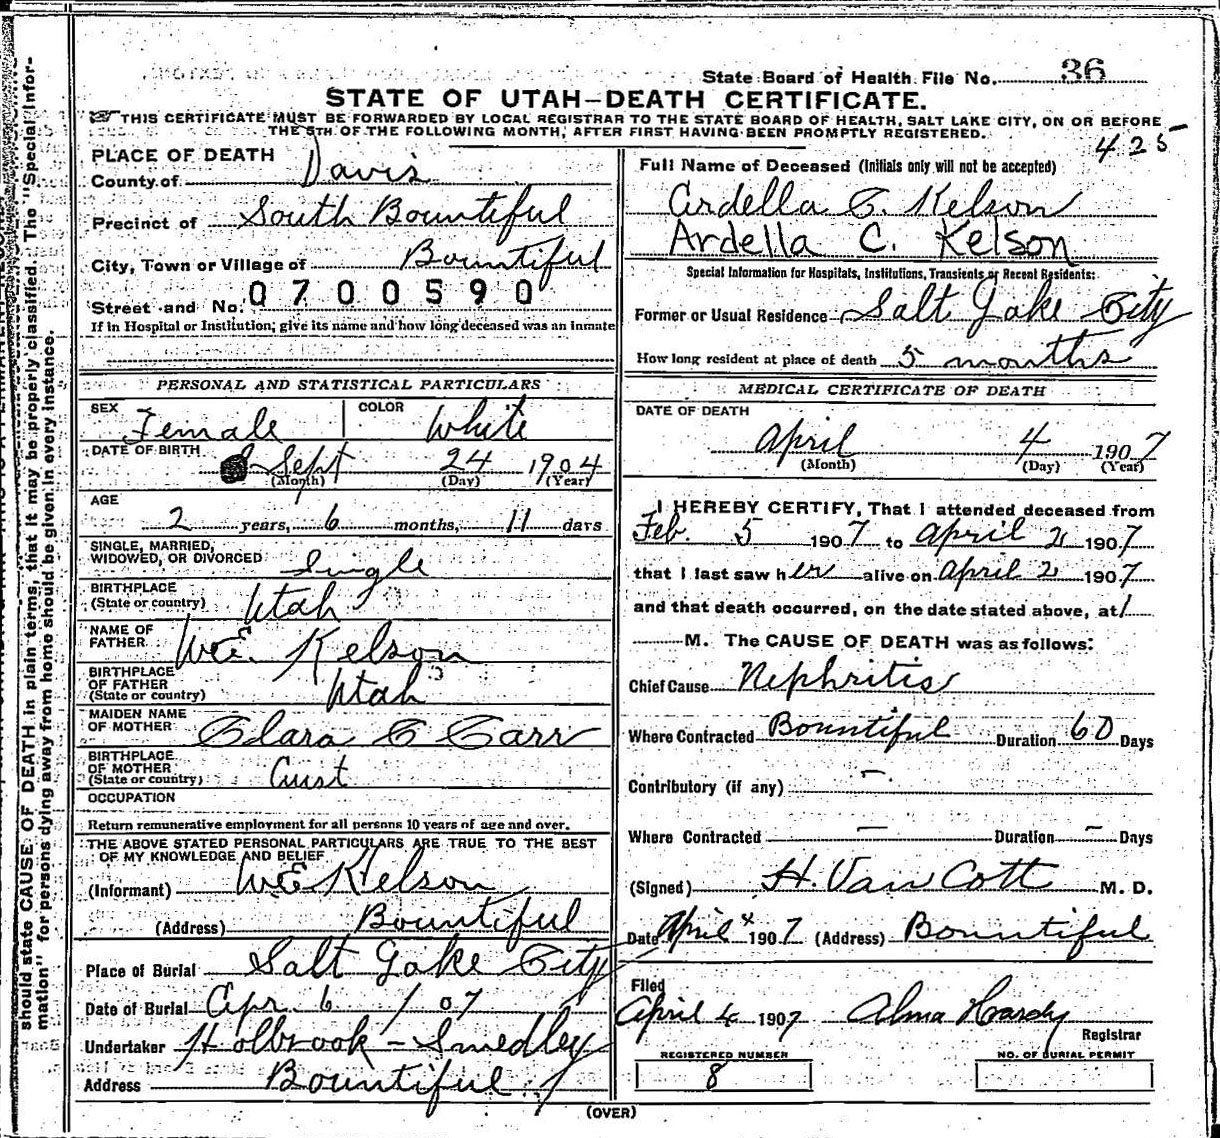 State Board of Health File No. 36
STATE OF UTAH—DEATH CERTIFICATE.
THIS CERTIFICATE MUST BE FORWARDED BY LOCAL REGISTRAR TO THE STATE BOARD OF HEALTH, SALT LAKE CITY, ON OR BEFORE
THE 5TH OF THE FOLLOWING MONTH, AFTER FIRST HAVING BEEN PROMPTLY REGISTERED.
425
PLACE OF DEATH
County of Davis
Precinct of South Bountiful
City, Town or Village of Bountiful
Street and No. 0700590
If in Hospital or Institution, give its name and how long deceased was an inmate
PERSONAL AND STATISTICAL PARTICULARS
SEX Female COLOR White
DATE OF BIRTH Sept 24 1904
(Month) (Day) (Year)
AGE
2 years, 6 months, 11 days
SINGLE, MARRIED,
WIDOWED, OR DIVORCED Single
BIRTHPLACE
(State or country) Utah
NAME OF
FATHER WE. Kelson
BIRTHPLACE
OF FATHER
(State or country) Utah
MAIDEN NAME
OF MOTHER Clara C Carr
BIRTHPLACE
OF MOTHER
(State or country) Aust
OCCUPATION
Return remunerative employment for all persons 10 years of age and over.
THE ABOVE STATED PERSONAL PARTICULARS ARE TRUE TO THE BEST
OF MY KNOWLEDGE AND BELIEF
(Informant) WE Kelson
(Address) Bountiful
Place of Burial Salt Lake City
Date of Burial Apr. 6 / 07
Undertaker Holbrook - Smedley
Address Bountiful
Full Name of Deceased (Initials only will not be accepted)
Ardella C. Kelson
Ardella C. Kelson
Special Information for Hospitals, Institutions, Transients or Recent Residents:
Former or Usual Residence Salt Lake City
How long resident at place of death 5 months
MEDICAL CERTIFICATE OF DEATH
DATE OF DEATH
April 4 1907
(Month) (Day) (Year)
I HEREBY CERTIFY, That I attended deceased from
Feb. 5 1907 to April 2 1907
that I last saw her alive on April 2 1907
and that death occurred, on the date stated above, at 1
M. The CAUSE OF DEATH was as follows:
Chief Cause Nephritis
Where Contracted Bountiful Duration 60 Days
Contributory (if any) —
Where Contracted — Duration — Days
(Signed) H. Van Cott M. D.
Date April 1907 (Address) Bountiful
Filed
April 4 1907 Alma Hardy
Registrar
REGISTERED NUMBER
8
NO. OF BURIAL PERMIT
(OVER)
should state CAUSE OF DEATH in plain terms, that it may be properly classified. The "Special Infor-
mation" for persons dying away from home should be given in every instance.